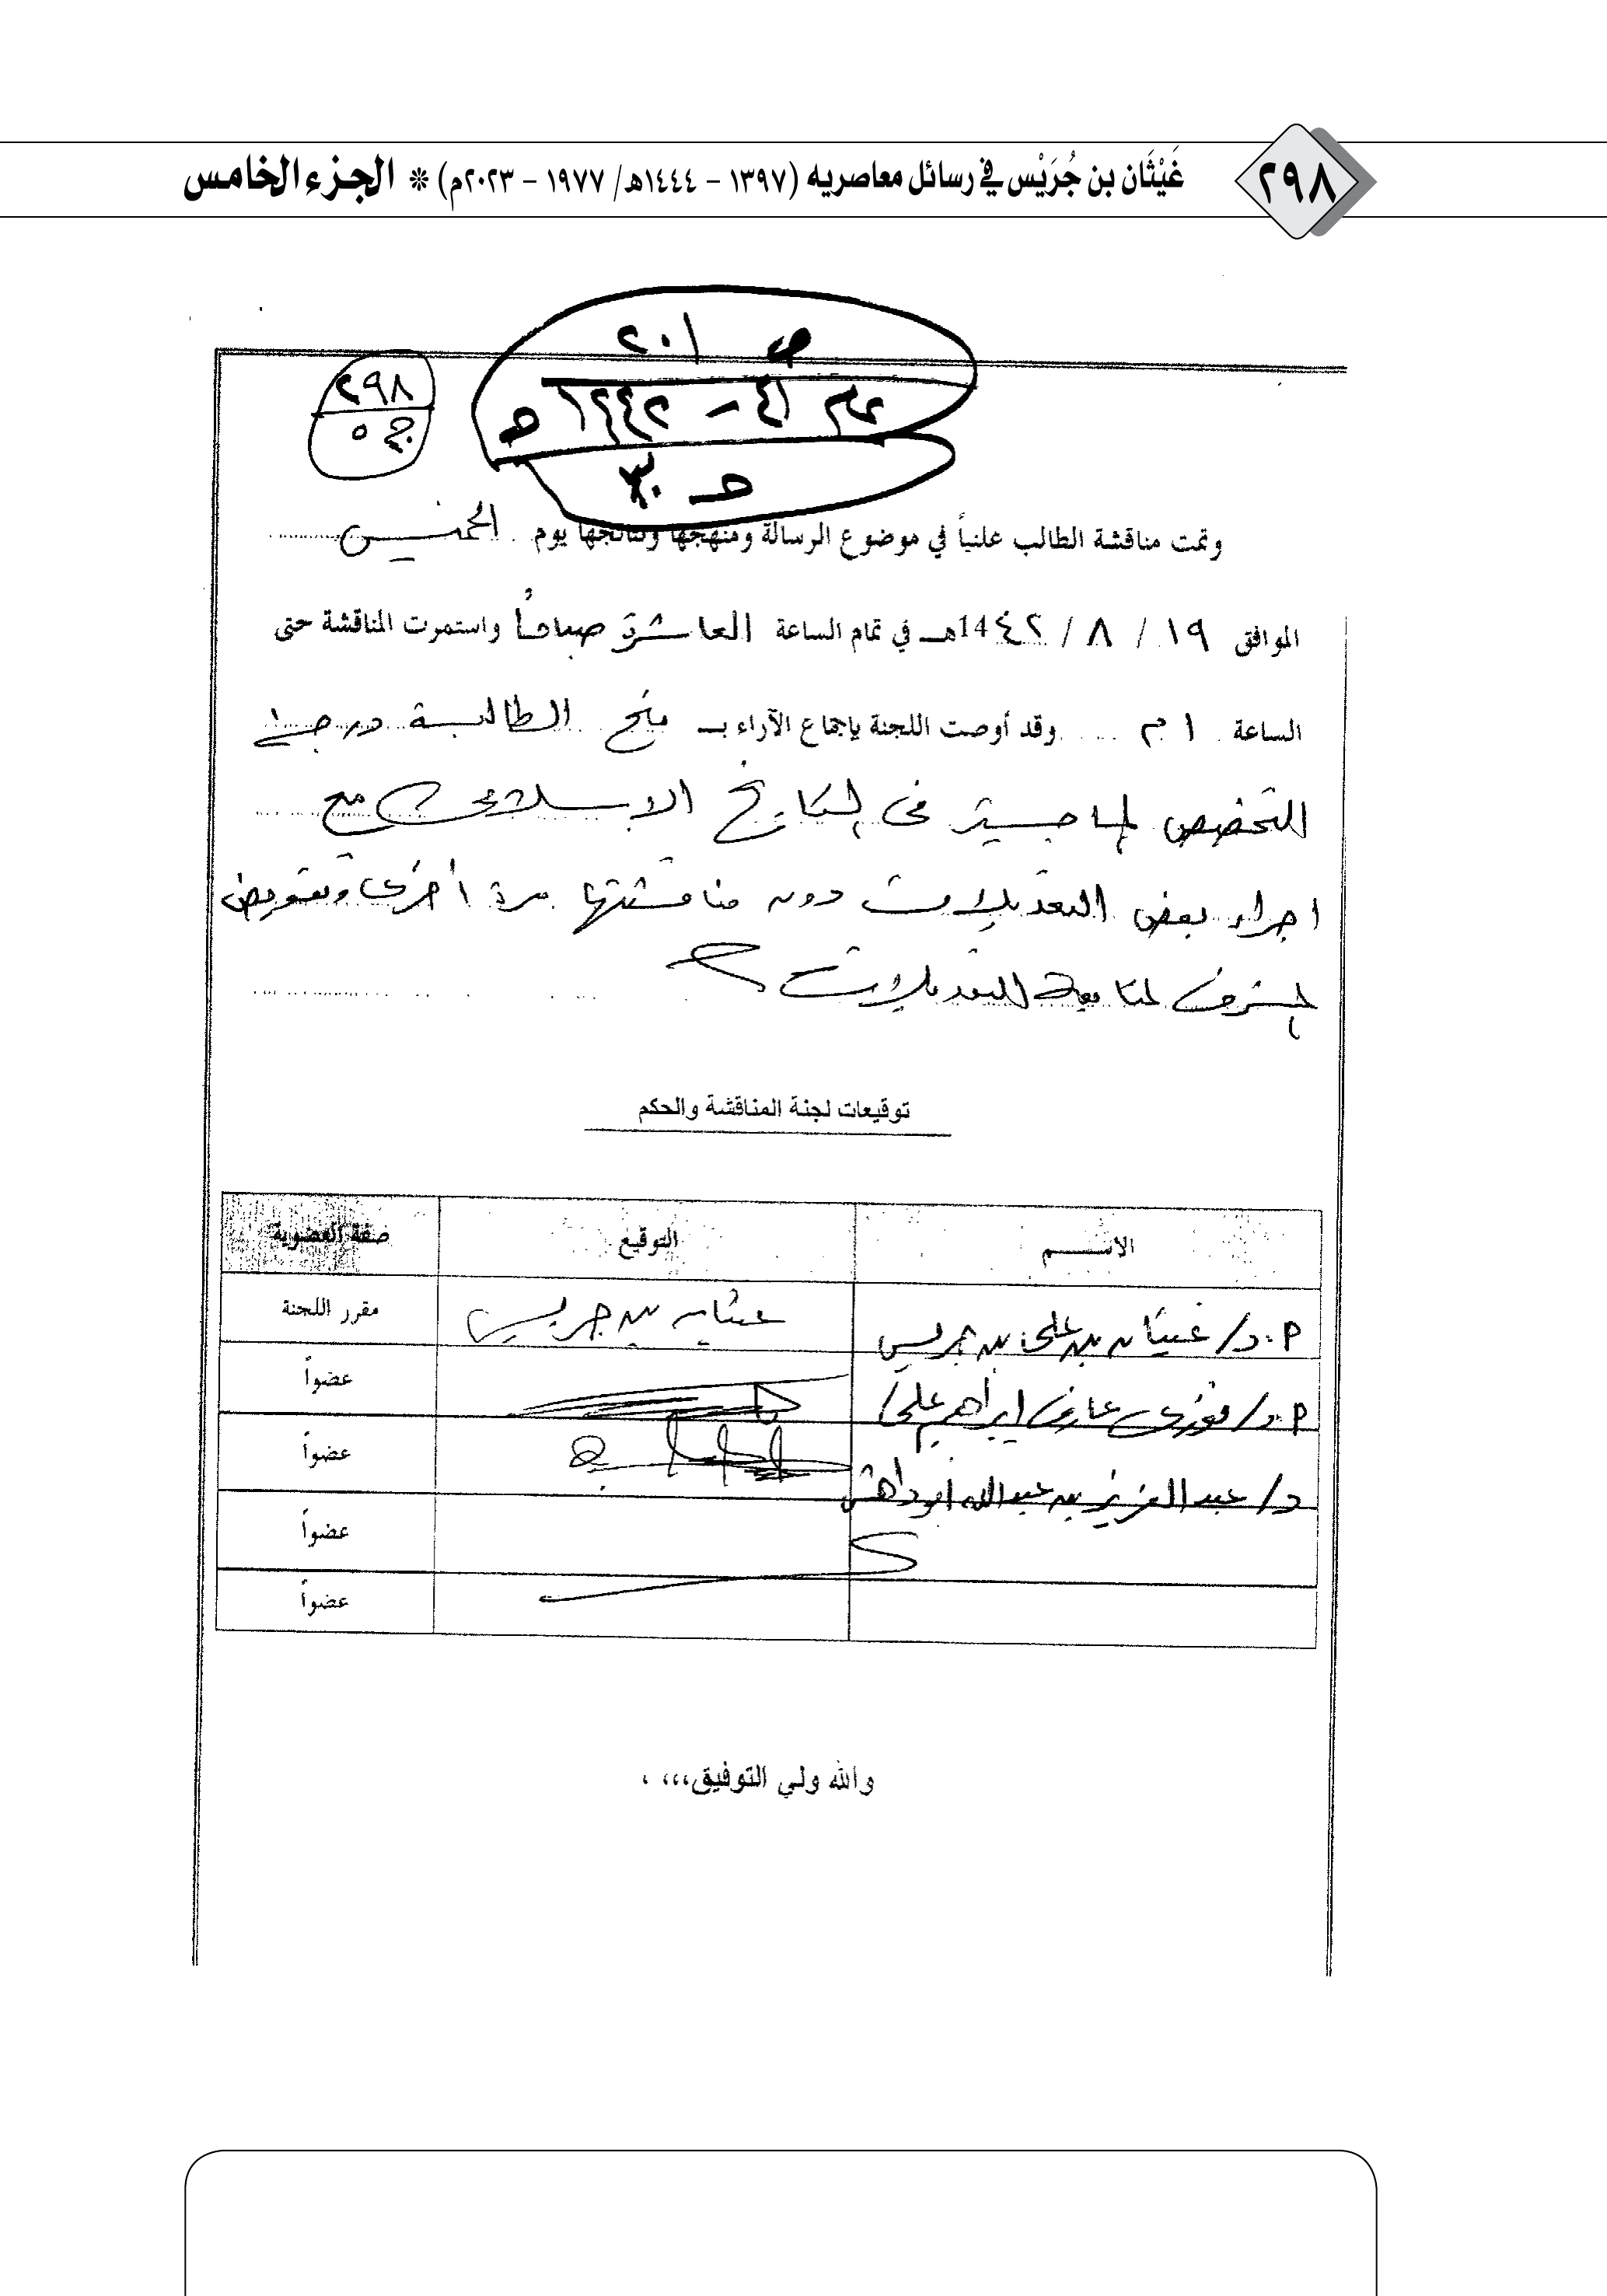 ٢٩٨
غَيْثَان بن جُرَيْس في رسائل معاصريه (١٣٩٧ - ١٤٤٤هـ/ ١٩٧٧ - ٢٠٢٣م) * الجزء الخامس
ص ٢٠١
عام ٤١ - ١٤٤٢ هـ
حـ ٣٠
٢٩٨
ج ٥
وتمت مناقشة الطالب علنياً في موضوع الرسالة ومنهجها ونتائجها يوم الخميس
الموافق ١٩ / ٨ / 14٤٢هـ في تمام الساعة العاشرة صباحاً واستمرت المناقشة حتى
الساعة ١ م وقد أوصت اللجنة بإجماع الآراء بـ منح الطالبة درجة
التخصص الماجستير في التاريخ الإسلامي مع
اجراء بعض التعديلات دون مناقشتها مرة أخرى وتفويض
المشرف لمتابعة التعديلات
توقيعات لجنة المناقشة والحكم
الاســـم التوقيع صفة العضوية
أ.د/ غيثان بن علي بن جريس غيثان بن جريس مقرر اللجنة
أ.د/ فوزي عارف إبراهيم علي عضواً
د/ عبدالعزيز بن عبدالله أبوداهش عضواً
عضواً
عضواً
والله ولي التوفيق،،، ،